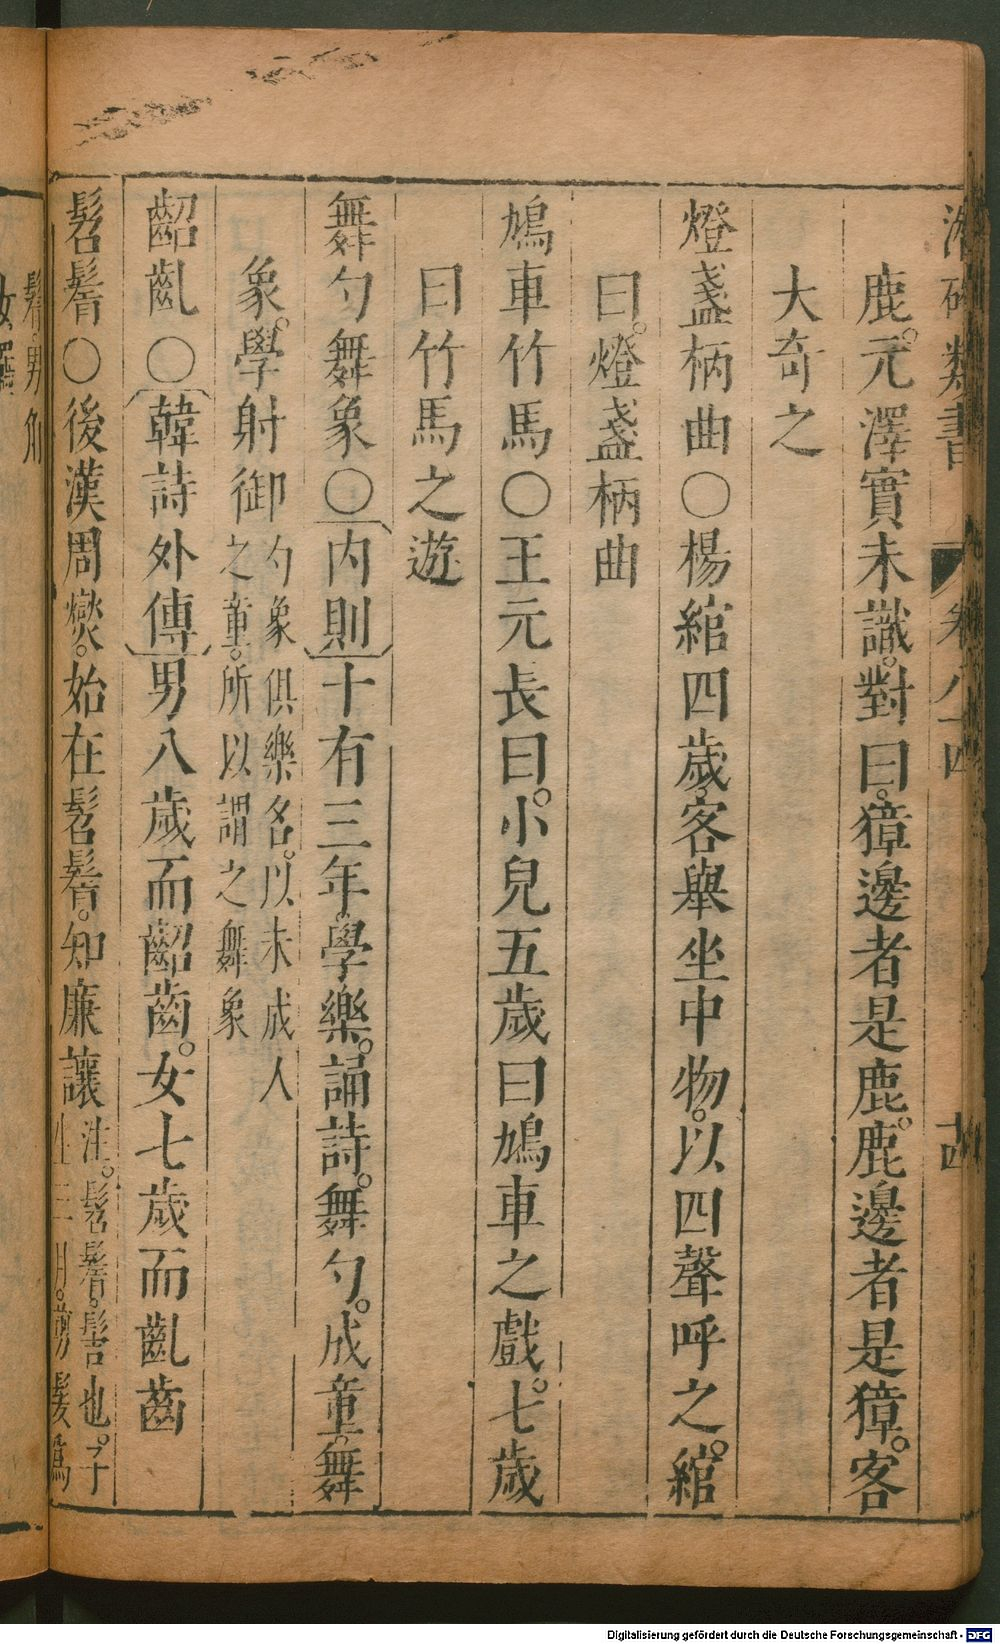 類書
卷八十四
鹿。元澤實未識。對曰。獐邊者是鹿。鹿邊者是獐。客
大奇之
燈盞柄曲〇楊綰四歲。客舉坐中物。以四聲呼之。綰
曰。燈盞柄曲
鳩車竹馬〇王元長曰。小兒五歲曰鳩車之戲。七歲
曰竹馬之遊
舞勺舞象〇內則十有三年。學樂。誦詩。舞勺。成童。舞
象。學射御
勺象俱樂名。以未成人
之童。所以謂之舞象
齠齓〇韓詩外傳男八歲而齠齒。女七歲而齓齒
髫鬌〇後漢周燮。始在髫鬌。知廉讓
注。髫鬌。髻也。子
生三月。剪髮爲
鬌。男角
女羈
Digitalisierung gefördert durch die Deutsche Forschungsgemeinschaft - DFG